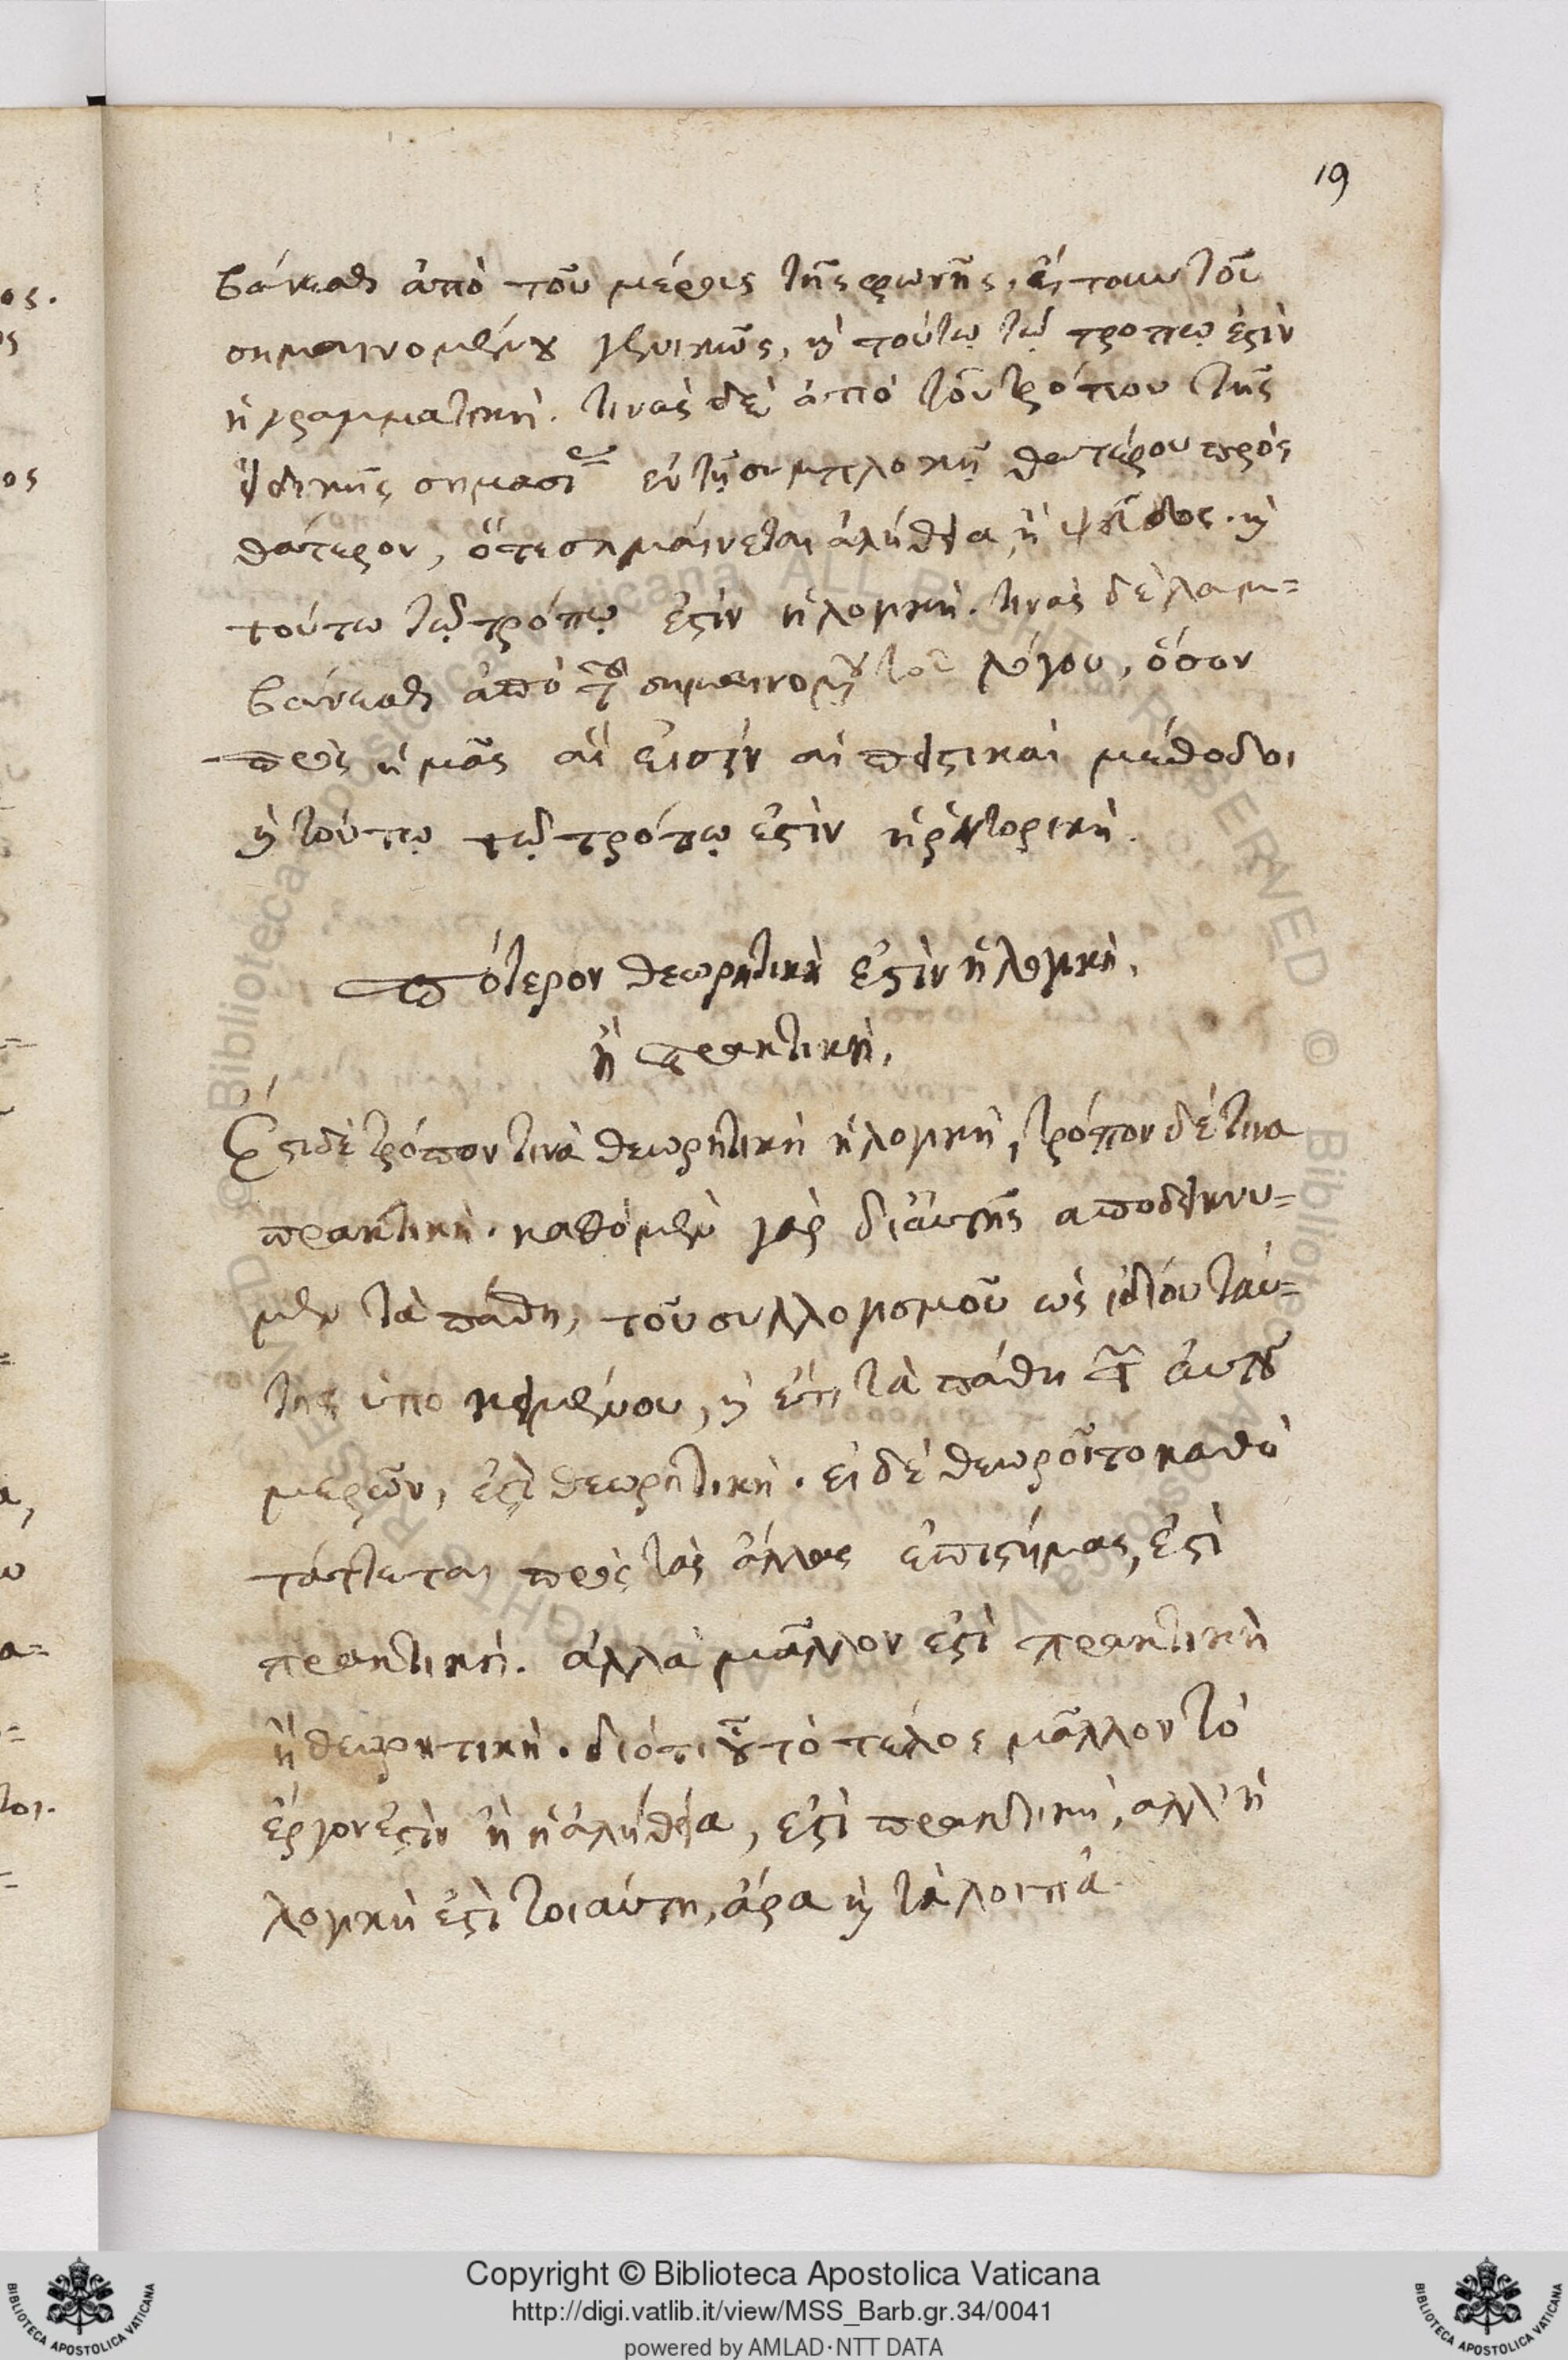 19
βάνεσθαι ἀπὸ τοῦ μέρους τῆς φωνῆς, εἴτουν τοῦ
σημαινομένου γενικῶς, καὶ τούτῳ τῷ τρόπῳ ἐστὶν
ἡ γραμματικὴ. τινὰς δὲ ἀπὸ τὸν τρόπον τῆς
εἰδικῆς σημασίας ἐν τῇ συμπλοκῇ θατέρου πρὸς
θάτερον, ὅτε σημαίνεται ἀλήθεια, ἢ ψεῦδος. καὶ
τούτω τῷ τρόπῳ ἐστὶν ἡ λογικὴ. τινὰς δὲ λαμ=
βάνεσθαι ἀπὸ τοῦ σημαινομένου τοῦ λόγου, ὅσον
πρὸς ἡμᾶς αἵ εἰσὶν αἱ πειστικαὶ μέθοδοι
καὶ τούτῳ τῷ τρόπῳ ἐστὶν ἡ ῥητορικὴ.
πότερον θεωρητικὴ ἐστὶν ἡ λογικὴ,
ἢ πρακτικὴ,
Ἔστι δὲ τρόπον τινὰ θεωρητικὴ ἡ λογικὴ, τρόπον δέ τινα
πρακτικὴ. καθὸ μὲν γὰρ δι' ἀυτῆς αποδείκνυ=
μεν τὰ πάθη, τοῦ συλλογισμοῦ ὡς ἰδίου ταύ=
της ὑποκειμένου, καὶ ἔτι τὰ πάθη τῶν ἀυτοῦ
μερῶν, ἐστὶ θεωρητικὴ. εἰ δὲ θεωροῖτο καθὸ
τάττεται πρὸς τὰς ἄλλας ἐπιστήμας, ἐστὶ
πρακτικὴ. ἀλλὰ μᾶλλον ἐστὶ πρακτικὴ
ἢ θεωρητικὴ. διότι οὗ τὸ τέλος μᾶλλον τὸ
ἔργον ἐστὶν ἢ ἡ ἀλήθεια, ἐστὶ πρακτικὴ, αλλ' ἡ
λογικὴ ἐστὶ τοιαύτη, ἄρα καὶ τὰ λοιπὰ.
Copyright © Biblioteca Apostolica Vaticana
http://digi.vatlib.it/view/MSS_Barb.gr.34/0041
powered by AMLAD·NTT DATA